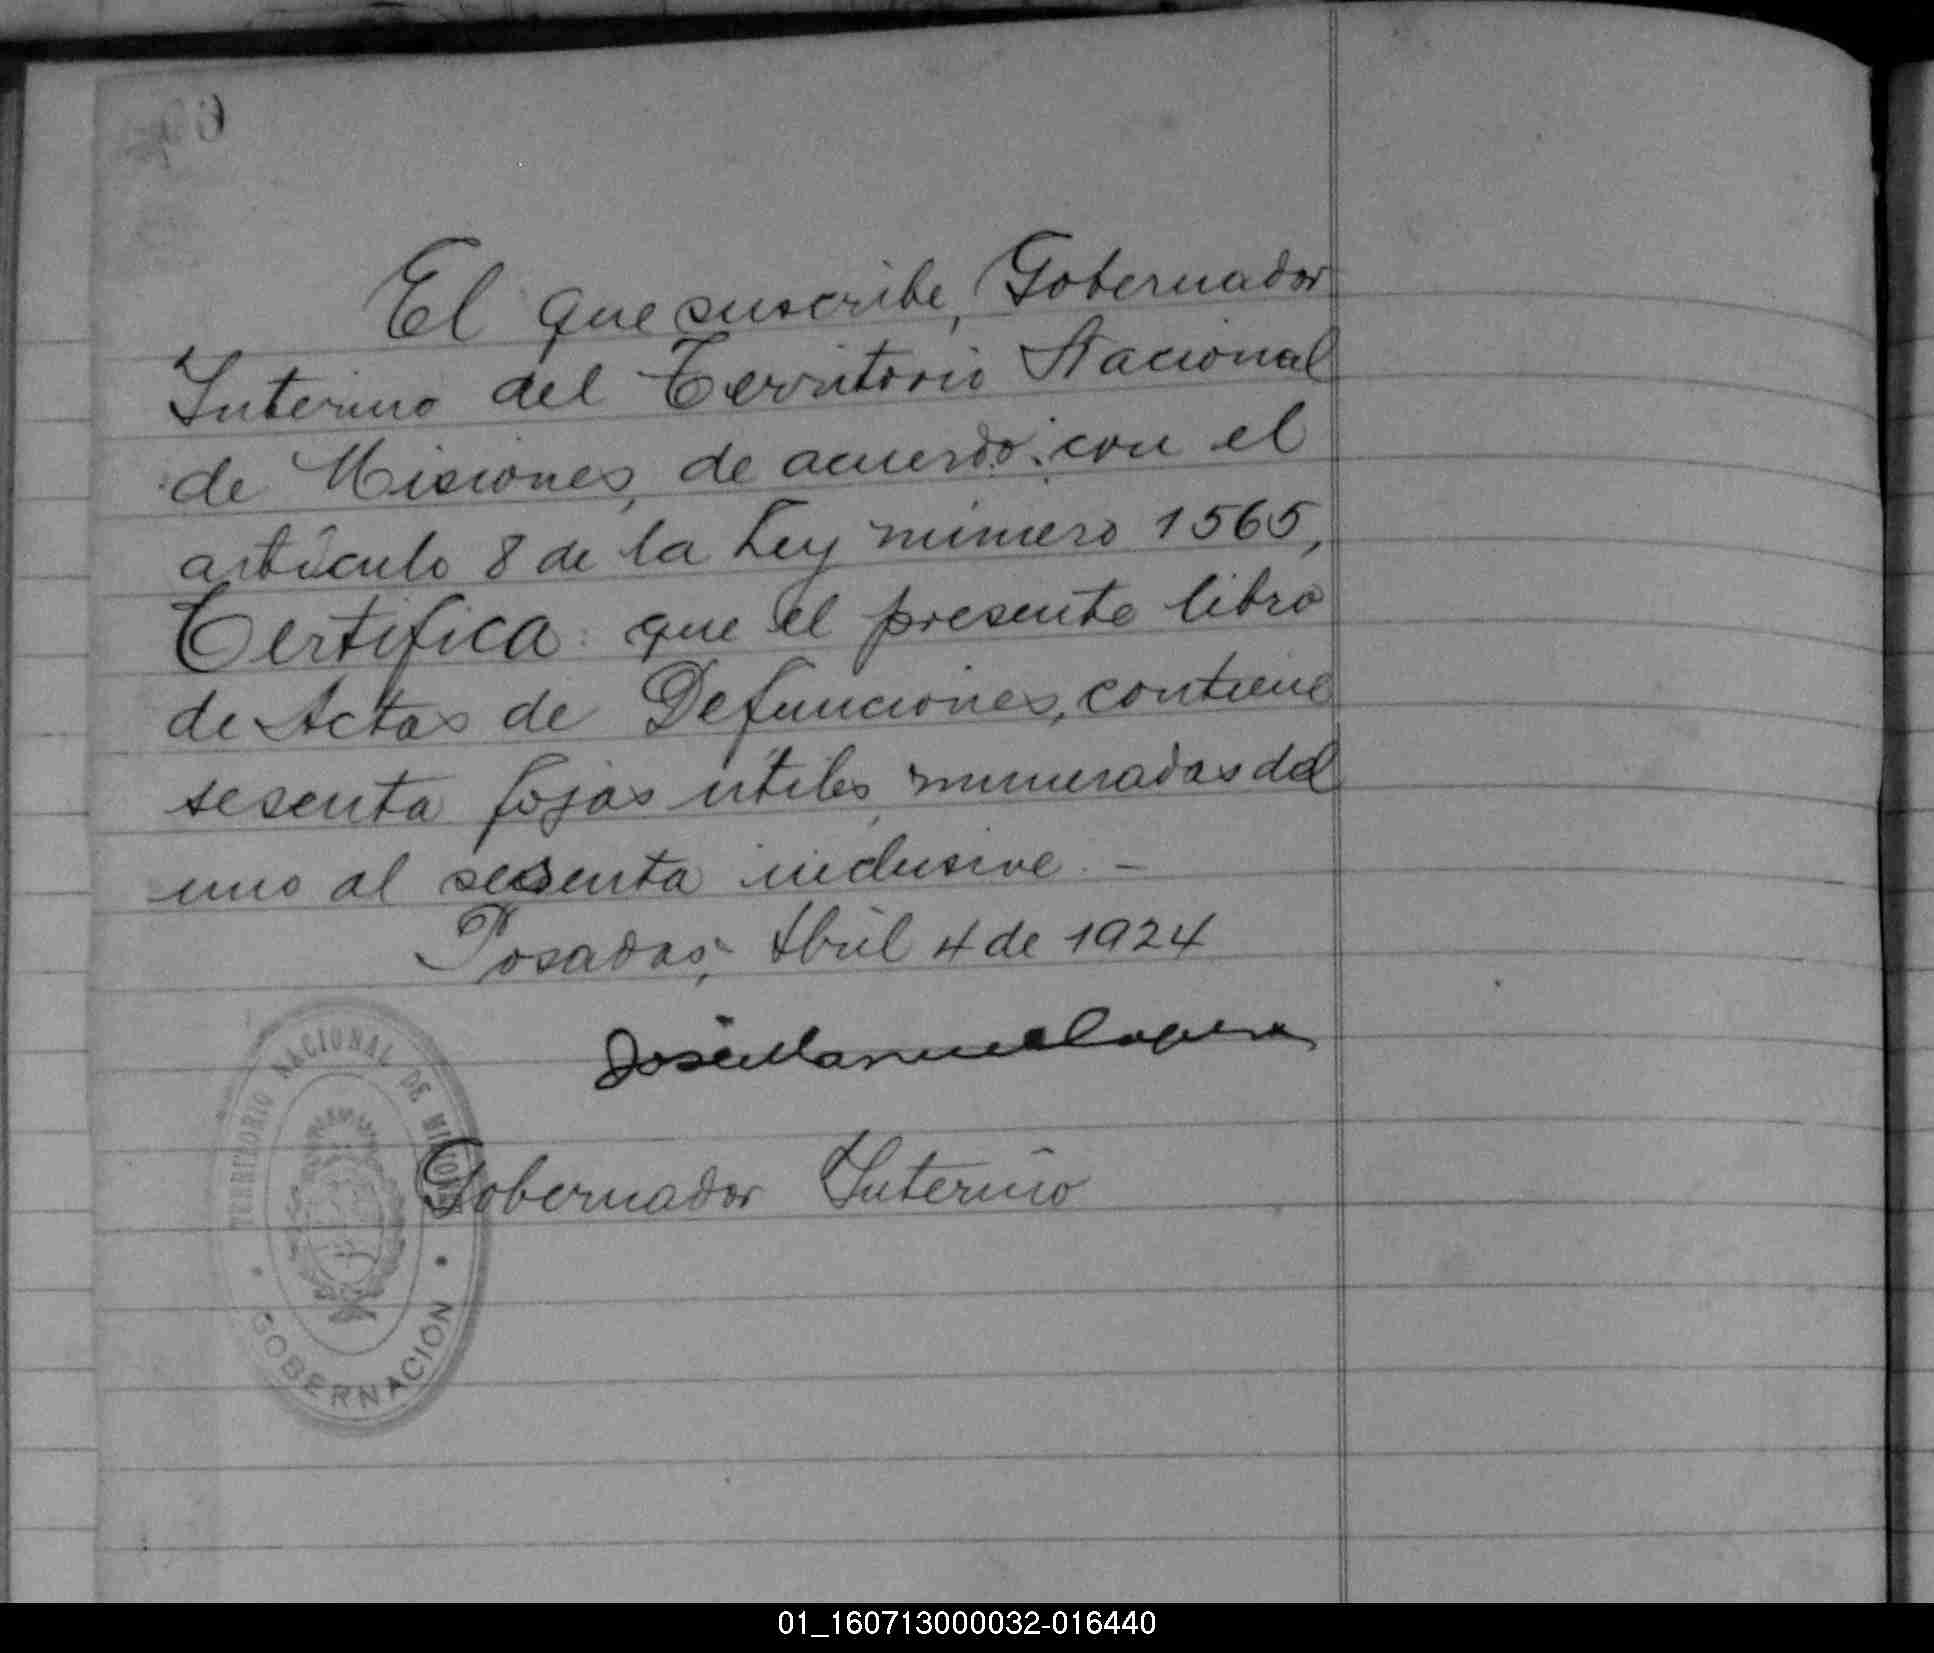 El que suscribe, Gobernador
Interino del Territorio Nacional
de Misiones, de acuerdo con el
artículo 8 de la Ley número 1565,
Certifica: que el presente libro
de Actas de Defunciones, contiene
sesenta fojas útiles, numeradas del
uno al sesenta inclusive. -
Posadas, Abril 4 de 1924
José Manuel
TERRITORIO NACIONAL DE MISIONES
Gobernador Interino
GOBERNACIÓN
01_160713000032-016440